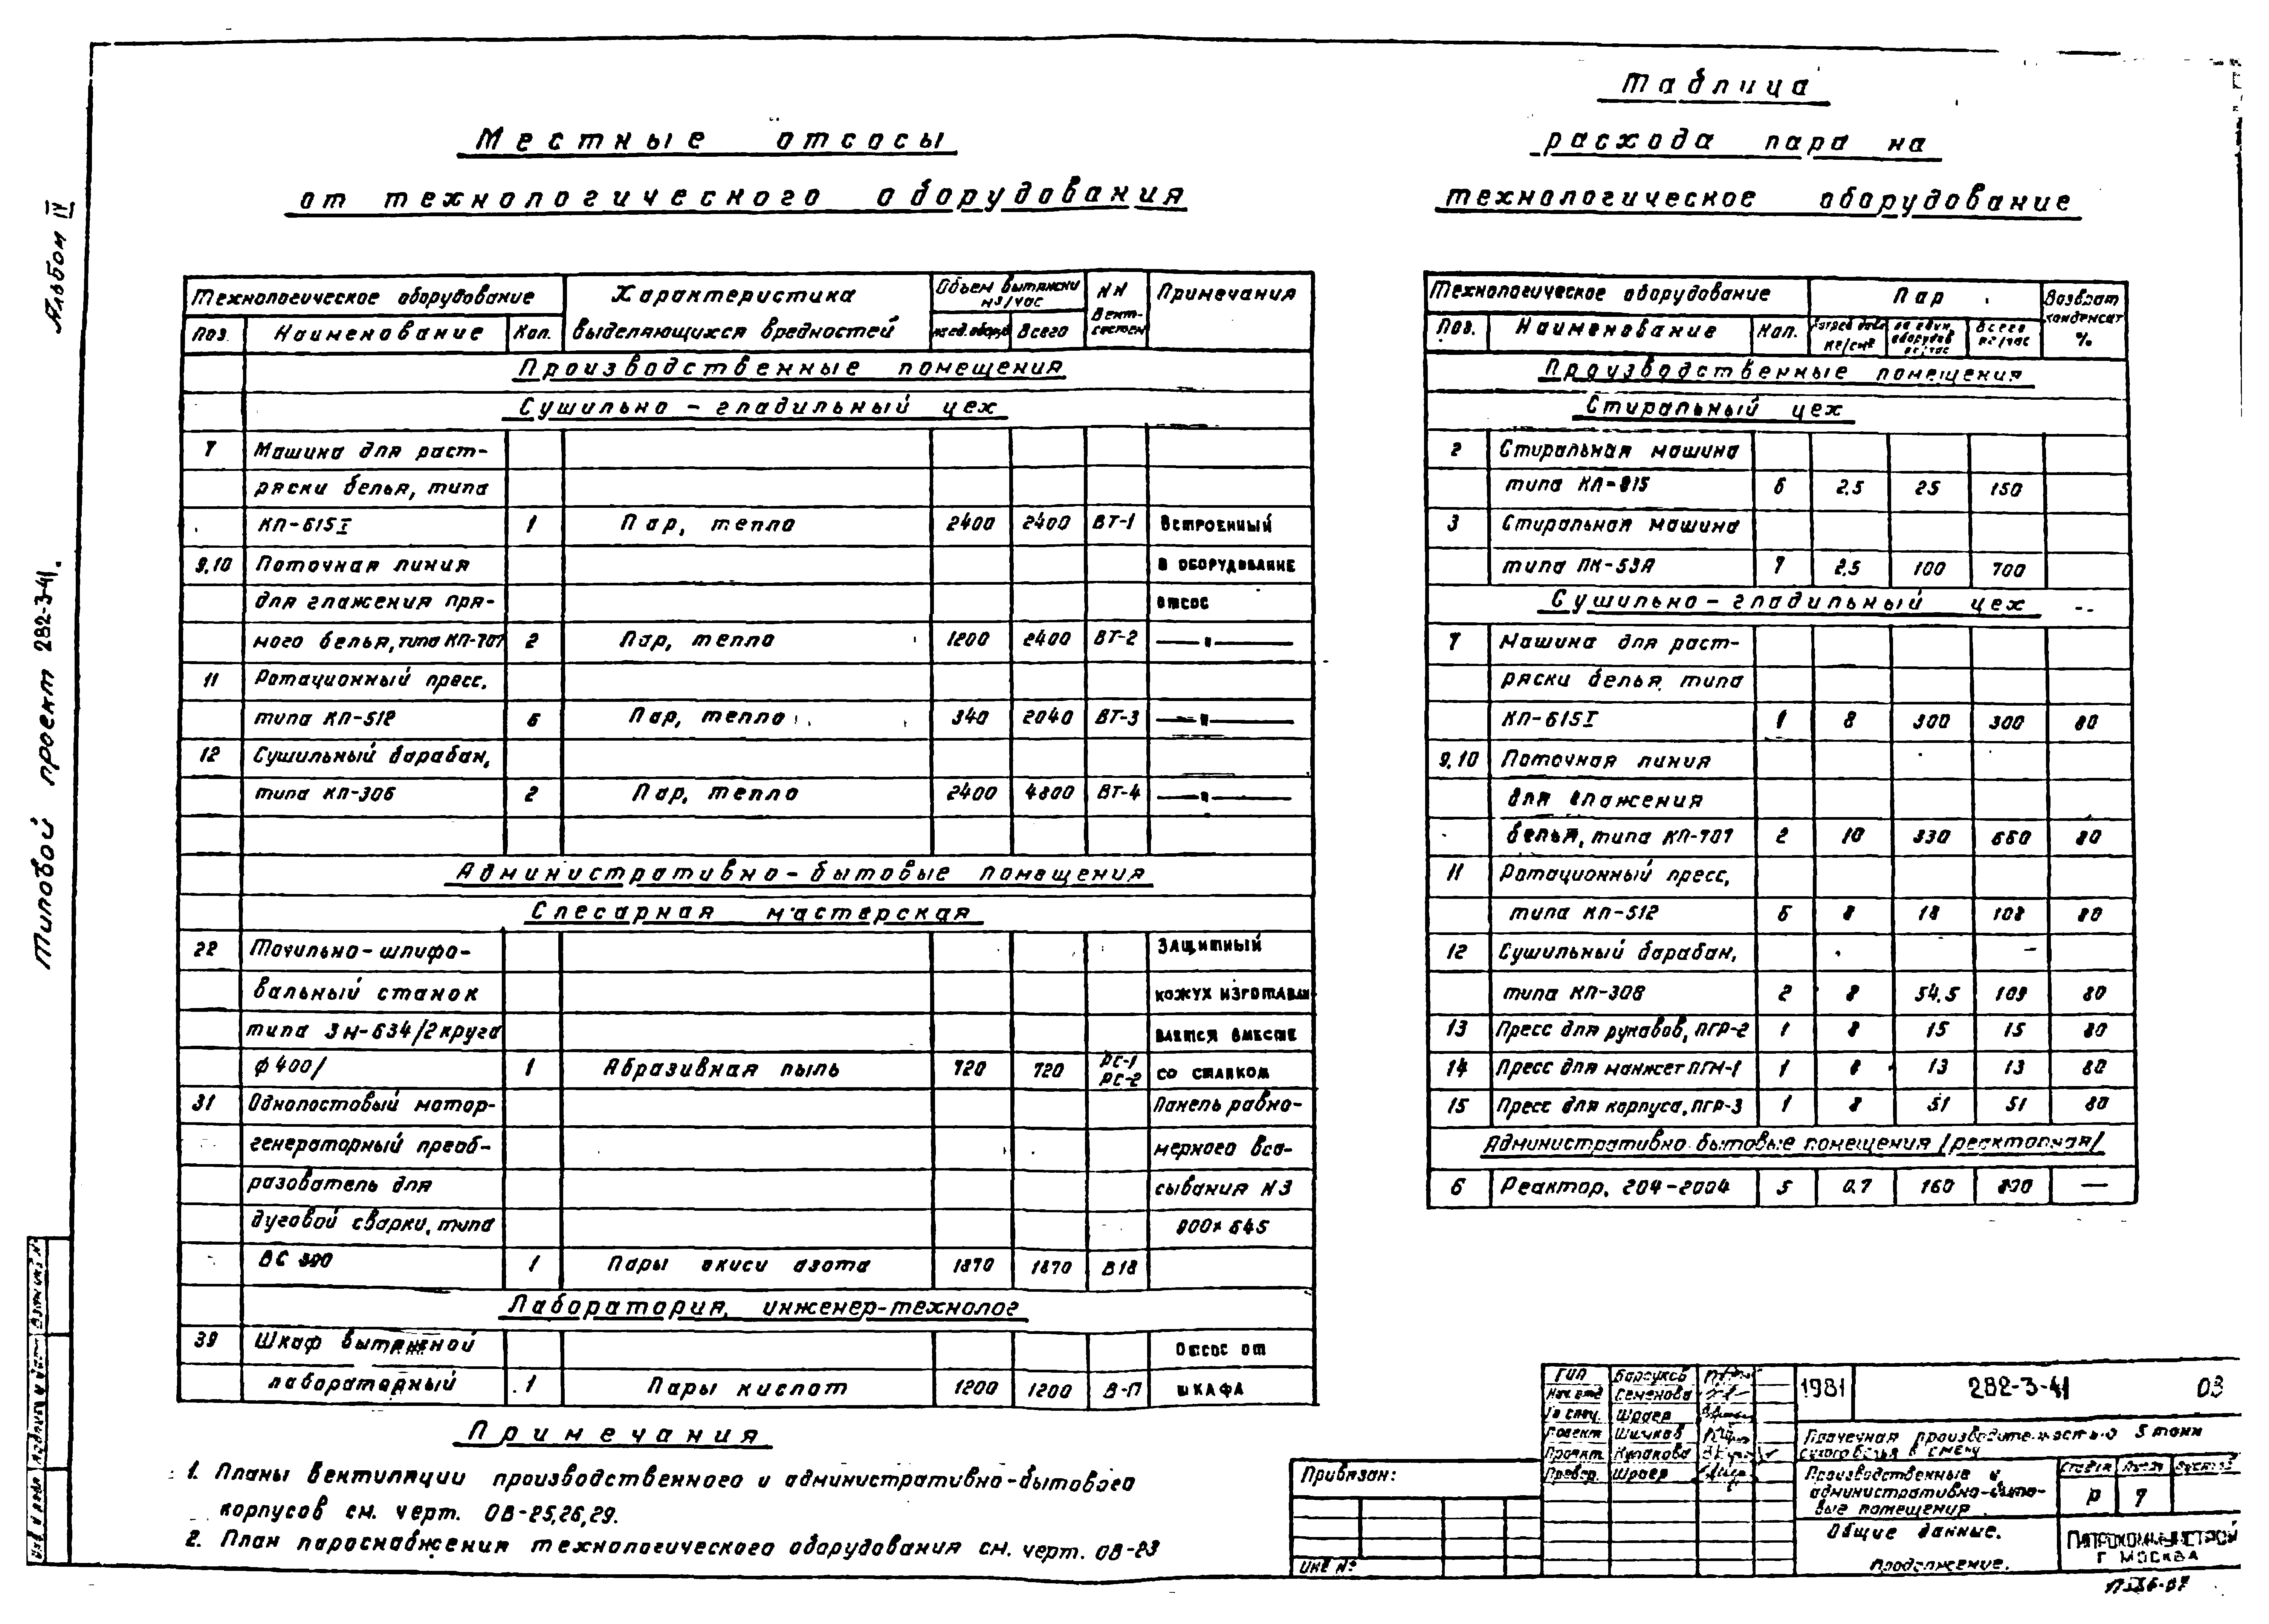 Альбом IV
Типовой проект 282-3-41.
Местные отсосы
от технологического оборудования
Технологическое оборудование
Характеристика выделяющихся вредностей
Объем вытяжки м3/час
NN вент-систем
Примечания
Поз. Наименование Кол. Всего
Производственные помещения
Сушильно-гладильный цех
7 Машина для раст-
ряски белья, типа
КП-615I 1 Пар, тепло 2400 2400 ВТ-1 Встроенный
9,10 Поточная линия в оборудование
для глажения пря- отсос
мого белья, типа КП-707 2 Пар, тепло 1200 2400 ВТ-2 —"—
11 Ротационный пресс,
типа КП-512 6 Пар, тепло 340 2040 ВТ-3 —"—
12 Сушильный барабан,
типа КП-306 2 Пар, тепло 2400 4800 ВТ-4 —"—
Административно-бытовые помещения
Слесарная мастерская
22 Точильно-шлифо- Защитный
вальный станок кожух изготавли-
типа 3М-634/2 круга вается вместе
ф 400/ 1 Абразивная пыль 720 720 РС-1 РС-2 со станком
31 Однопостовый мотор- Панель равно-
генераторный преоб- мерного вса-
разователь для сывания N3
дуговой сварки, типа 900х645
ВС 300 1 Пары окиси азота 1870 1870 В18
Лаборатория, инженер-технолог
39 Шкаф вытяжной Отсос от
лабораторный 1 Пары кислот 1200 1200 В-17 шкафа
Примечания
1. Планы вентиляции производственного и административно-бытового
корпусов см. черт. ОВ-25,26,29.
2. План пароснабжения технологического оборудования см. черт. ОВ-23
Таблица
расхода пара на
технологическое оборудование
Технологическое оборудование Пар Возврат конденсат %
Поз. Наименование Кол. кг/см² на един. оборудов кг/час Всего кг/час
Производственные помещения
Стиральный цех
2 Стиральная машина
типа КП-815 6 2,5 25 150
3 Стиральная машина
типа ПК-53А 7 2,5 100 700
Сушильно-гладильный цех
7 Машина для раст-
ряски белья, типа
КП-615I 1 8 300 300 80
9,10 Поточная линия
для глажения
белья, типа КП-707 2 10 330 660 80
11 Ротационный пресс,
типа КП-512 6 8 18 108 80
12 Сушильный барабан,
типа КП-306 2 8 54,5 109 80
13 Пресс для рукавов, ПГР-2 1 8 15 15 80
14 Пресс для манжет ПГМ-1 1 8 13 13 80
15 Пресс для корпуса, ПГР-3 1 8 51 51 80
Административно-бытовые помещения /реакторная/
6 Реактор, 204-2004 5 0,7 160 800 —
Привязан:
Инв №
ГИП Борсуков
Нач. отд Семенова
Гл спец. Шраер
Шичков
Проект. Кулакова
Провер. Шраер
1981 282-3-41 ОВ
Прачечная производительностью 5 тонн
сухого белья в смену
Производственные и
административно-быто-
вые помещения
Стадия Лист Листов
Р 7
Общие данные.
Продолжение.
Гипрокоммунстрой
г Москва